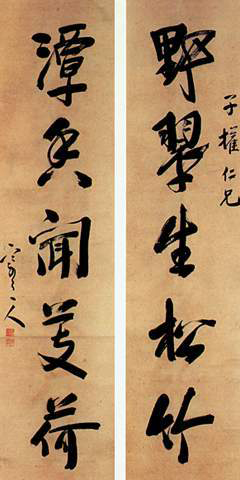 子權仁兄
野翠生松竹
潭香聞芰荷